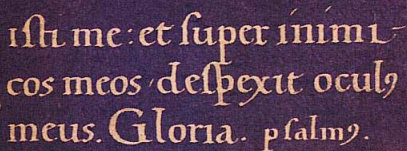 ısti me: et super inimi-
cos meos, despexit oculꝰ
meus. Gloria. psalmꝰ.